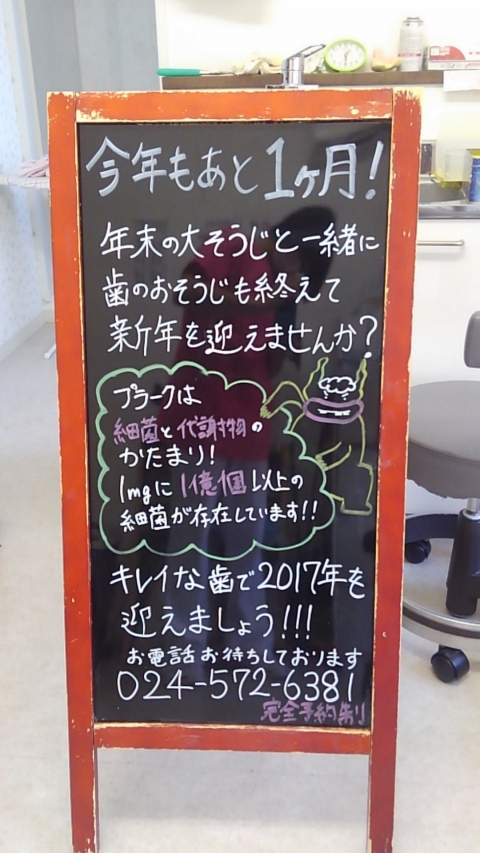 今年もあと1ヶ月!
年末の大そうじと一緒に
歯のおそうじも終えて
新年を迎えませんか?
プラークは
細菌と代謝物の
かたまり!
1mgに1億個以上の
細菌が存在しています!!
キレイな歯で2017年を
迎えましょう!!!
お電話お待ちしております
024-572-6381
完全予約制